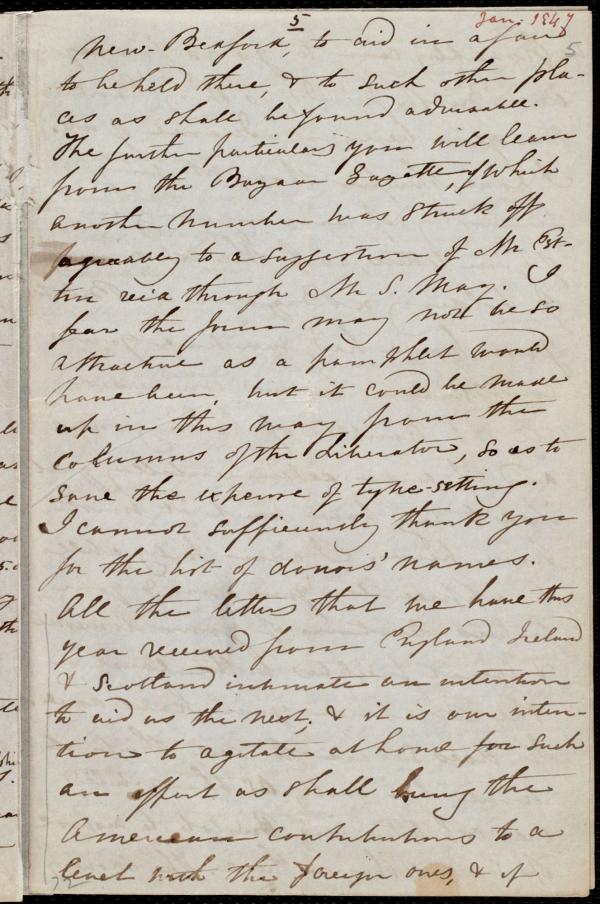 5
Jan. 1847
5
New-Bedford, to aid in a fair
to be held there, & to such other pla-
ces as shall be found advisable.
The further particulars you will learn
from the Bazaar Gazette, of which
another number was struck off
agreeably to a suggestion of Mr Est-
lin rec'd through Mr S. May. I
fear the form may not be so
attractive as a pamphlet would
have been, but it could be made
up in this way from the
columns of the Liberator, so as to
save the expense of type-setting.
I cannot sufficiently thank you
for the list of donors' names.
All the letters that we have this
year received from England Ireland
& Scotland intimate an intention
to aid us the next; & it is our inten-
tion to agitate at home for such
an effort as shall bring the
American contributions to a
level with the foreign ones, & if